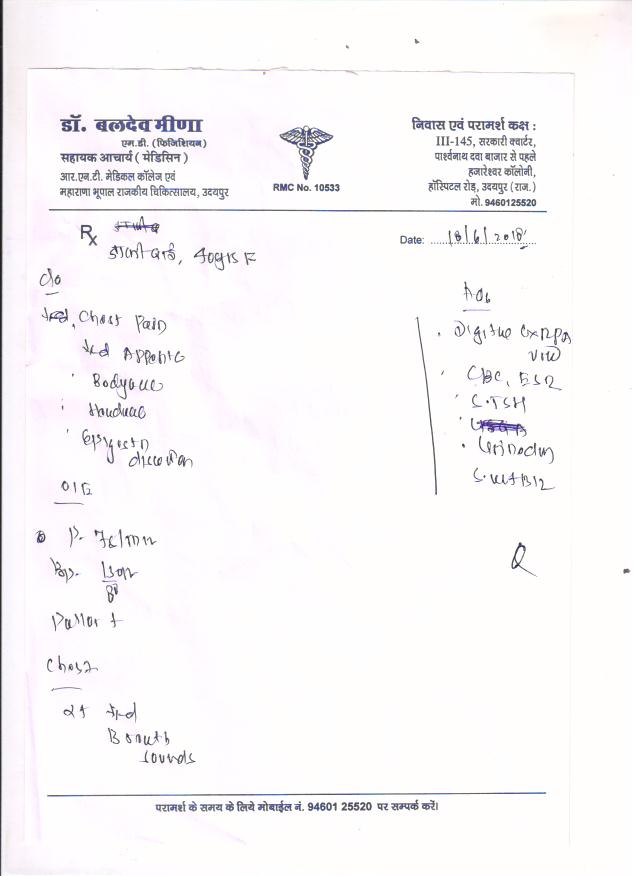 डॉ. बलदेव मीणा
एम.डी. (फिजिशियन)
सहायक आचार्य ( मेडिसिन )
आर.एन.टी. मेडिकल कॉलेज एवं
महाराणा भूपाल राजकीय चिकित्सालय, उदयपुर
RMC No. 10533
निवास एवं परामर्श कक्ष :
III-145, सरकारी क्वार्टर,
पार्श्वनाथ दवा बाजार से पहले
हजारेश्वर कॉलोनी,
हॉस्पिटल रोड़, उदयपुर (राज.)
मो. 9460125520
Rx
Date: 18/6/2018
40yrs F
c/o
Chest Pain
Appetite
Bodyache
Headache
O/E
P. 78/min
BP.
Pallor +
Chest
Breath
sounds
Adv
Digital
view
CBC, ESR
S.TSH
S.Vit B12
परामर्श के समय के लिये मोबाईल नं. 94601 25520 पर सम्पर्क करें।